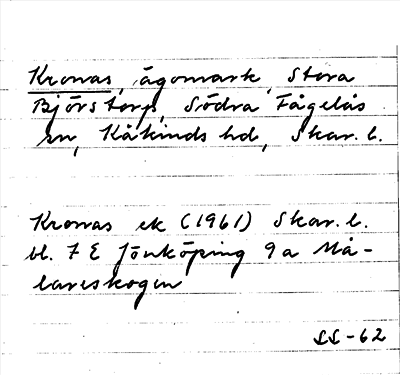 Kronas, ägomark, Stora
Björstorp, Södra Fågelås
sn, Kåkinds hd, Skar. l.
Kronas ek (1961) Skar. l.
bl. 7 E Jönköping 9a Må-
lareskogen
SS-62